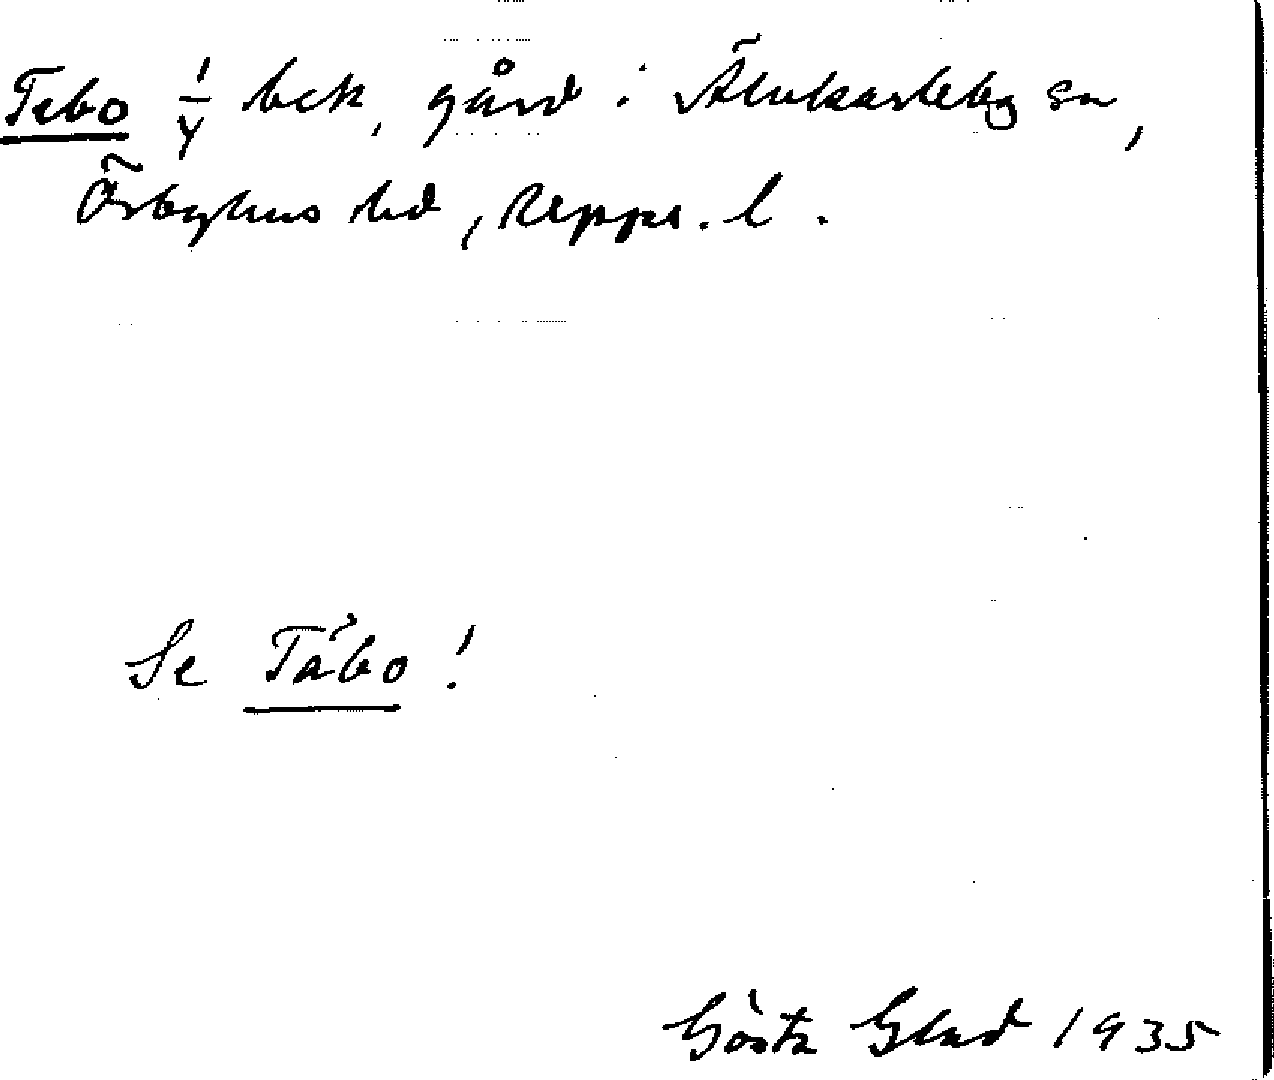 Tebo 1/4 bek, gård i Älvkarleby sn,
Örbyhus hd, Upps. l.
Se Täbo!
Gösta Glad 1935